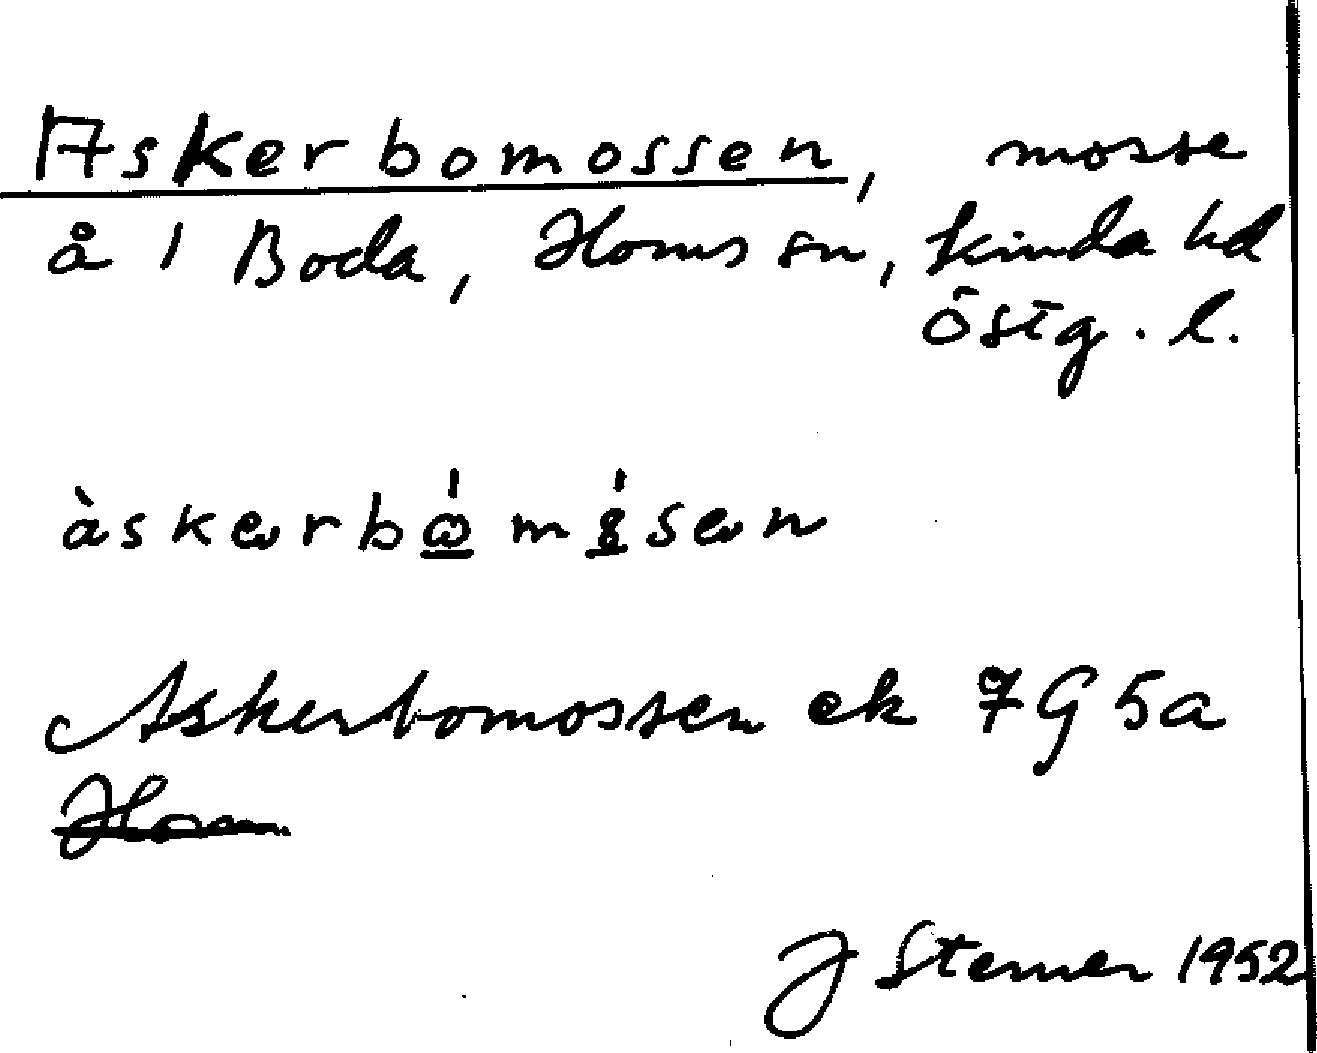 Askerbomossen, mosse
å 1 Boda, Horns sn, Kinda hd
Östg. l.
Askerbomossen ek 7G5a
Horn
J Sterner 1952